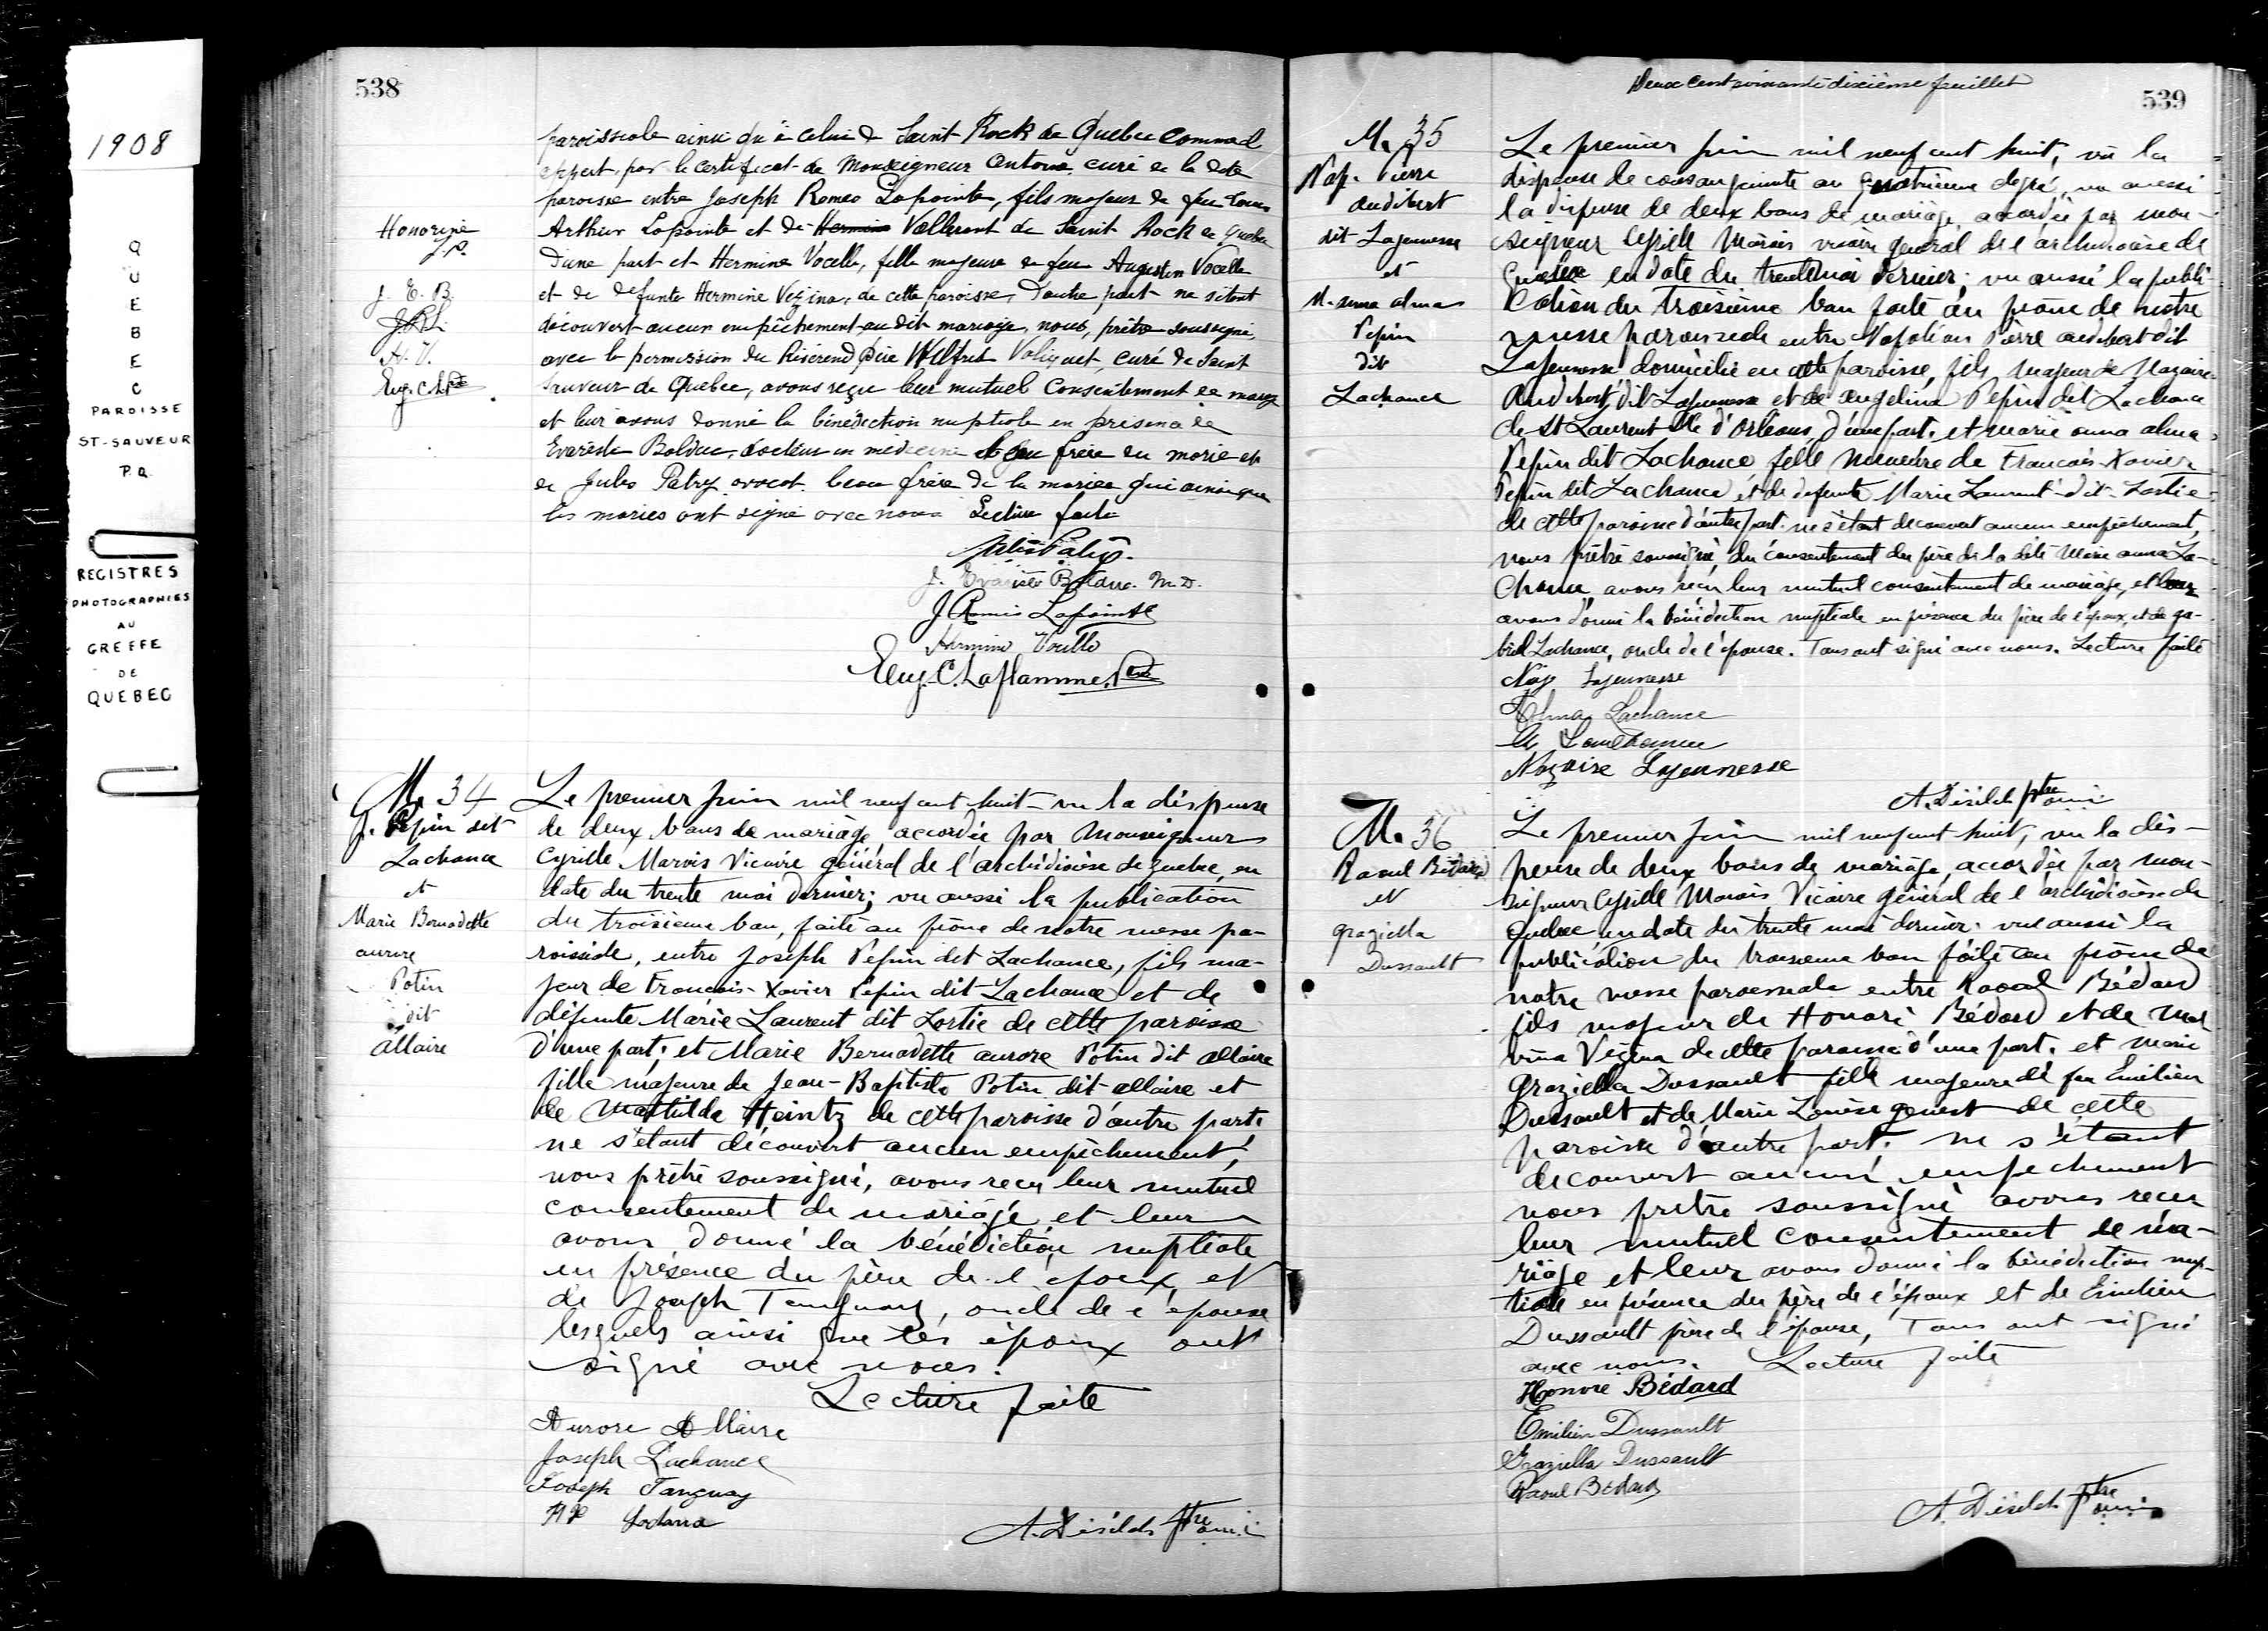 1908
QUEBEC
PAROISSE
ST-SAUVEUR
P.Q.
REGISTRES
PHOTOGRAPHIES
AU
GREFFE
DE
QUEBEC
538
paroissiale ainsi qu'à celui de Saint Roch de Quebec comme il
appert par le certificat de Monseigneur curé de la dite
paroisse entre Joseph Romeo Lapointe, fils majeur de feu Louis
Honorine
J.P.
Arthur Lapointe et de Hermine Vallerant de Saint Roch de Quebec
d'une part et Hermine Vocelle, fille majeure de feu Augustin Vocelle
J. E. B.
et de defunte Hermine Vezina, de cette paroisse, d'autre part ne s'étant
J.R.L.
découvert aucun empêchement au dit mariage, nous, prêtre soussigné,
H. V.
avec la permission du Révérend père Wilfrid Valiquet, curé de Saint
Eug. C. L. Ptre
Sauveur de Quebec, avons reçu leur mutuel consentement de mariage
et leur avons donné la bénédiction nuptiale en présence de
Evariste Bolduc, docteur en médecine beau frère du marié et
de Jules Patry avocat beau frère de la mariée qui ainsi que
les mariés ont signé avec nous Lecture faite
Jules Patry
J. Evariste Bolduc M.D.
J Romeo Lapointe
Hermine Vocelle
Eug. C. Laflamme, Ptre
M. 34
J. Pepin dit
Lachance
et
Marie Bernadette
aurore
Potin
dit
allaire
Le premier juin mil neuf cent huit vu la dispense
de deux bans de mariage, accordée par Monseigneur
Cyrille Marois Vicaire général de l'archidiocèse de Quebec, en
date du trente mai dernier; vu aussi la publication
du troisième ban, faite au prône de notre messe pa-
roissiale, entre Joseph Pepin dit Lachance, fils ma-
jeur de François-Xavier Pepin dit Lachance et de
défunte Marie Laurent dit Lortie de cette paroisse
d'une part; et Marie Bernadette aurore Potin dit allaire
fille majeure de Jean-Baptiste Potin dit allaire et
de Mathilda Heintz de cette paroisse d'autre part.
ne s'étant découvert aucun empêchement,
nous prêtre soussigné, avons reçu leur mutuel
consentement de mariage et leur
avons donné la bénédiction nuptiale
en présence du père de l'époux, et
de Joseph Tanguay, oncle de l'épouse
lesquels ainsi que les époux ont
signé avec nous.
Lecture faite
Aurore Allaire
Joseph Lachance
Joseph Tanguay
A. Désilets ptre o.m.i.
Deux cent soixante dixième feuillet
539
M. 35
Nap. Pierre
audibert
dit Lajeunesse
et
M. anna alma
Pepin
dit
Lachance
Le premier juin mil neuf cent huit, vu la
dispense de consanguinité au quatrième degré, vu aussi
la dispense de deux bans de mariage accordée par mon-
seigneur Cyrille Marois vicaire général de l'archidiocèse de
Quebec en date du trente mai dernier; vu aussi la publi-
cation du troisième ban faite au prône de notre
messe paroissiale entre Napoléon Pierre audibert dit
Lajeunesse domicilié en cette paroisse, fils majeur de Nazaire
Audibert dit Lajeunesse et de angelina Pepin dit Lachance
de St Laurent Ile d'Orléans, d'une part. et marie anna alma
Pepin dit Lachance fille mineure de François-Xavier
Pepin dit Lachance et de defunte Marie Laurent-dit-Lortie
de cette paroisse d'autre part. ne s'étant découvert aucun empêchement,
nous prêtre soussigné, du consentement du père de la dite Marie anna La-
chance, avons reçu leur mutuel consentement de mariage, et leur
avons donné la bénédiction nuptiale en présence du père de l'époux, et de ga-
briel Lachance, oncle de l'épouse. Tous ont signé avec nous. Lecture faite
Nap Lajeunesse
Alma Lachance
Nazaire Lajeunesse
A. Désilets ptre o.m.i.
M. 36
Raoul Bédard
et
Graziella
Dussault
Le premier juin mil neuf cent huit, vu la dis-
pense de deux bans de mariage, accordée par mon-
seigneur Cyrille Marois Vicaire général de l'archidiocèse de
Quebec en date du trente mai dernier; vu aussi la
publication du troisième ban faite au prône de
notre messe paroissiale entre Raoul Bédard
fils majeur de Honoré Bédard et de Mal-
vina Vézina de cette paroisse d'une part. et marie
Graziella Dussault fille majeure de feu Emilien
Dussault et de Marie Louise genest de cette
paroisse d'autre part. ne s'étant
découvert aucun empechement
nous prêtre soussigné avons reçu
leur mutuel consentement de ma-
riage et leur avons donné la bénédiction nup-
tiale en présence du père de l'époux et de Emilien
Dussault frère de l'épouse, Tous ont signé
avec nous. Lecture faite
Honoré Bédard
Emilien Dussault
Graziella Dussault
Raoul Bédard
A. Désilets ptre o.m.i.